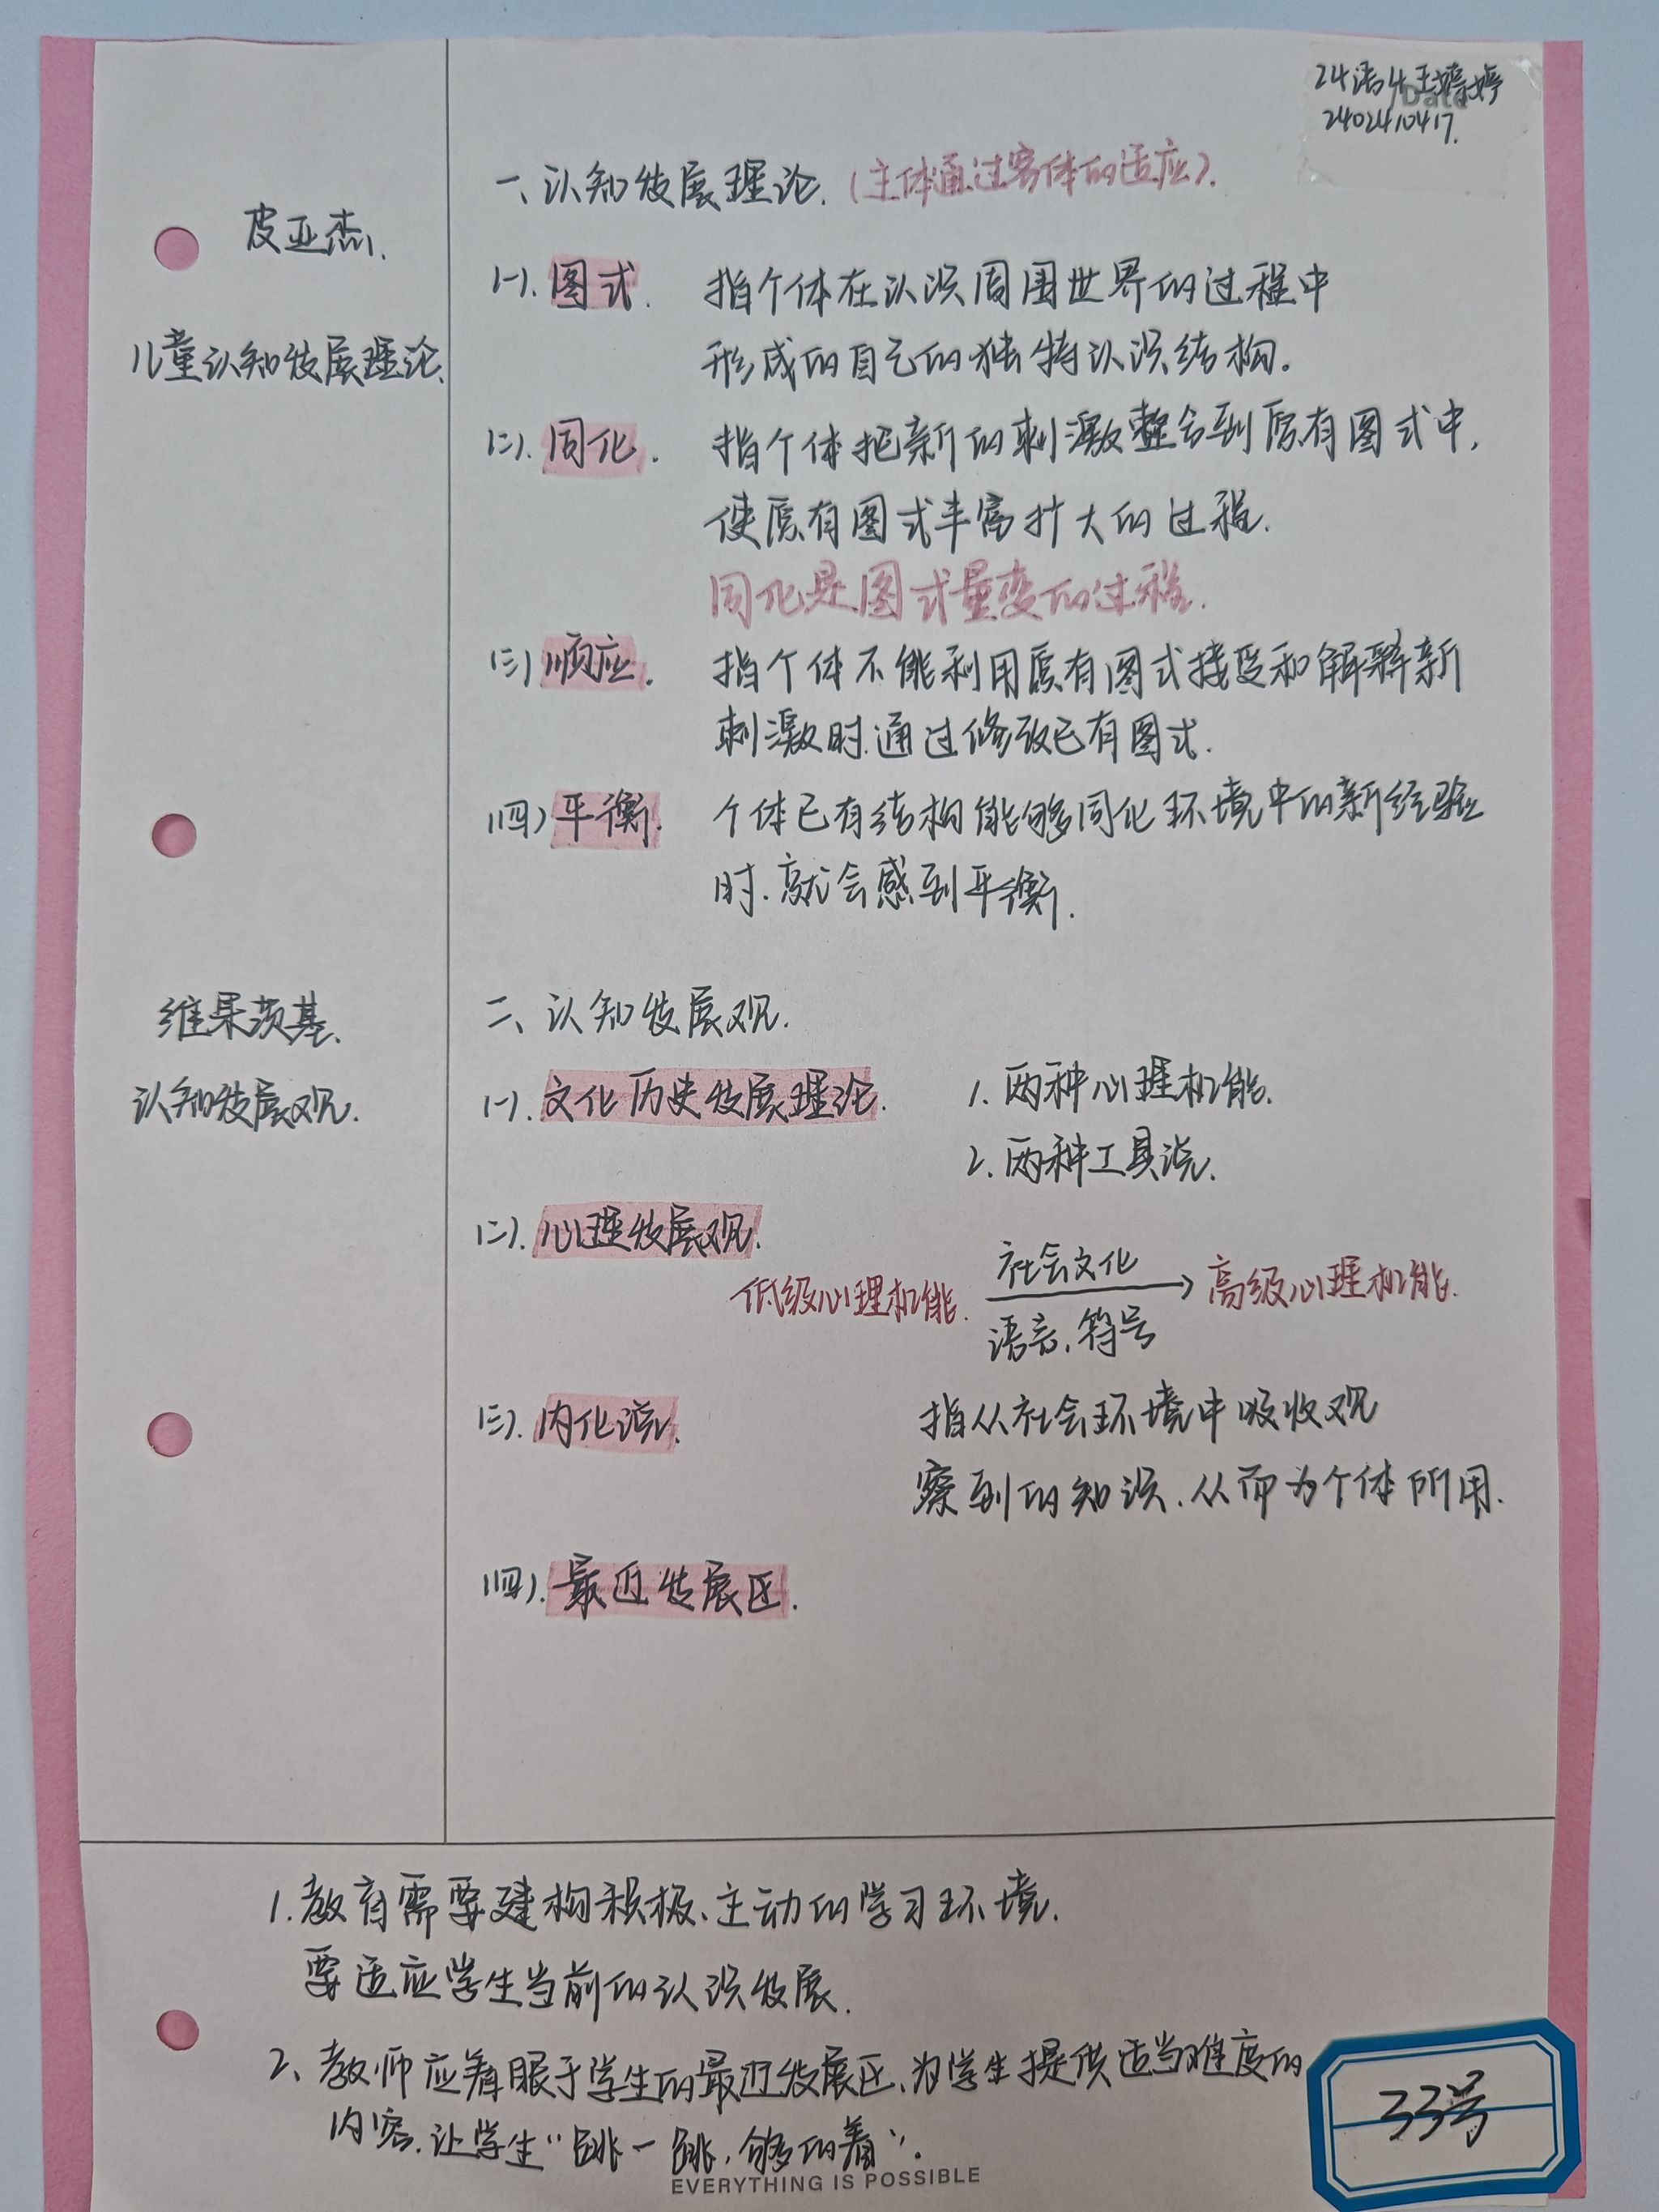 24语4王婷婷
Date
2402410417.
皮亚杰.
儿童认知发展理论.
一、认知发展理论.(主体通过客体的适应).
(一).图式. 指个体在认识周围世界的过程中
形成的自己的独特认识结构.
(二).同化. 指个体把新的刺激整合到原有图式中,
使原有图式丰富扩大的过程.
同化是图式量变的过程.
(三)顺应. 指个体不能利用原有图式接受和解释新
刺激时.通过修改已有图式.
(四)平衡. 个体已有结构能够同化环境中的新经验
时.就会感到平衡.
维果茨基.
认知发展观.
二、认知发展观.
(一).文化历史发展理论. 1.两种心理机能.
2.两种工具说.
(二).心理发展观.
低级心理机能. 社会文化 → 高级心理机能.
语言.符号
(三).内化说. 指从社会环境中吸收观
察到的知识.从而为个体所用.
(四).最近发展区.
1.教育需要建构积极、主动的学习环境.
要适应学生当前的认识发展.
2、教师应着眼于学生的最近发展区、为学生提供适当难度的
内容.让学生“跳一跳,够的着”.
EVERYTHING IS POSSIBLE
33号